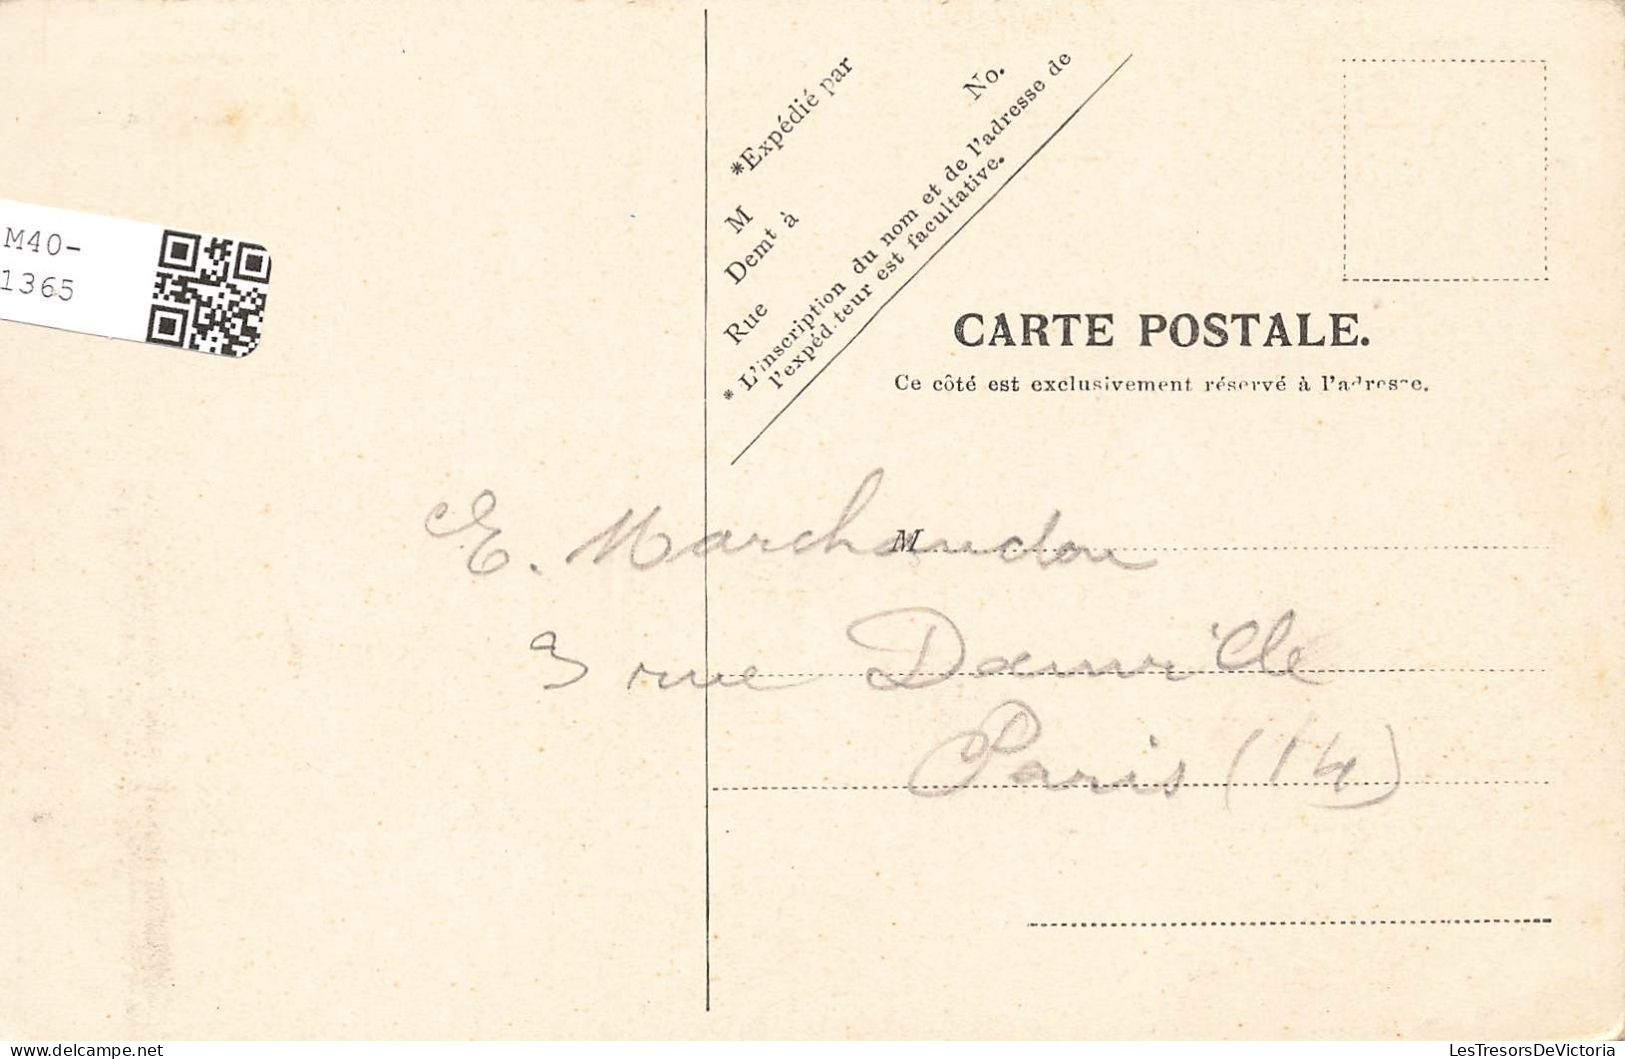 M40-
1365
*Expédié par
M
Demt à
Rue
No.
* L'inscription du nom et de l'adresse de
l'expéd.teur est facultative.
CARTE POSTALE.
Ce côté est exclusivement réservé à l'adresse.
M
E. Marchandou
3 rue Danville
Paris (14)
LesTresorsDeVictoria
delcampe.net